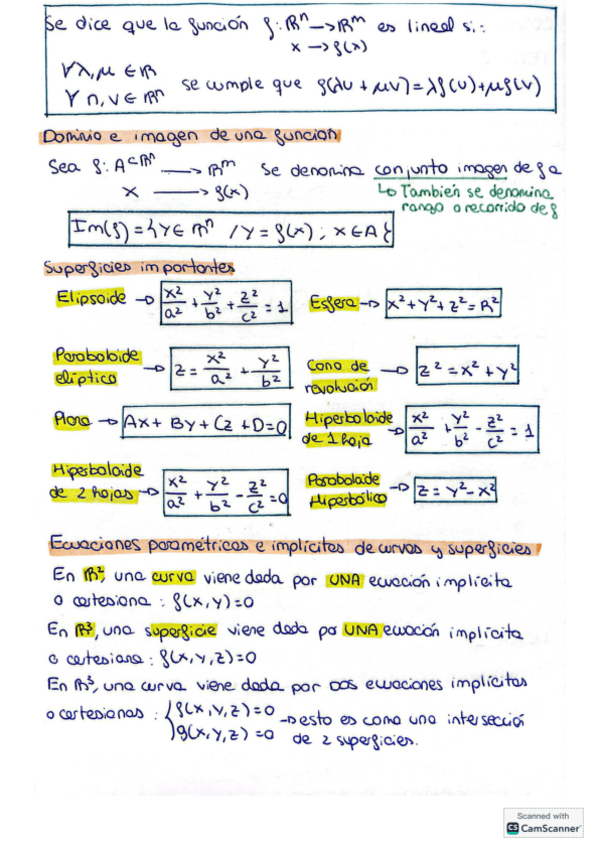 Se dice que la función f: ℝⁿ → ℝᵐ es lineal si:
x → f(x)
∀λ, μ ∈ ℝ
∀ n, v ∈ ℝⁿ se cumple que f(λu + μv) = λf(u) + μf(v)
Dominio e imagen de una función
Sea f: A⊂ℝⁿ → ℝᵐ se denomina conjunto imagen de f a
x → f(x) ↳ También se denomina
rango o recorrido de f
Im(f) = {y ∈ ℝⁿ / y = f(x) ; x ∈ A}
Superficies importantes
Elipsoide → x²/a² + y²/b² + z²/c² = 1 Esfera → x² + y² + z² = R²
Paraboloide elíptico → z = x²/a² + y²/b² Cono de revolución → z² = x² + y²
Plano → Ax + By + Cz + D = 0 Hiperboloide de 1 hoja → x²/a² + y²/b² - z²/c² = 1
Hiperboloide de 2 hojas → x²/a² + y²/b² - z²/c² = 0 Paraboloide Hiperbólico → z = y² - x²
Ecuaciones paramétricas e implícitas de curvas y superficies
En ℝ², una curva viene dada por UNA ecuación implícita
o cartesiana : f(x,y)=0
En ℝ³, una superficie viene dada po UNA ecuación implícita
o cartesiana : f(x,y,z)=0
En ℝ³, una curva viene dada por dos ecuaciones implícitas
o cartesianas : { f(x,y,z)=0 → esto es como una intersección
g(x,y,z)=0 de 2 superficies.
Scanned with
CS CamScanner